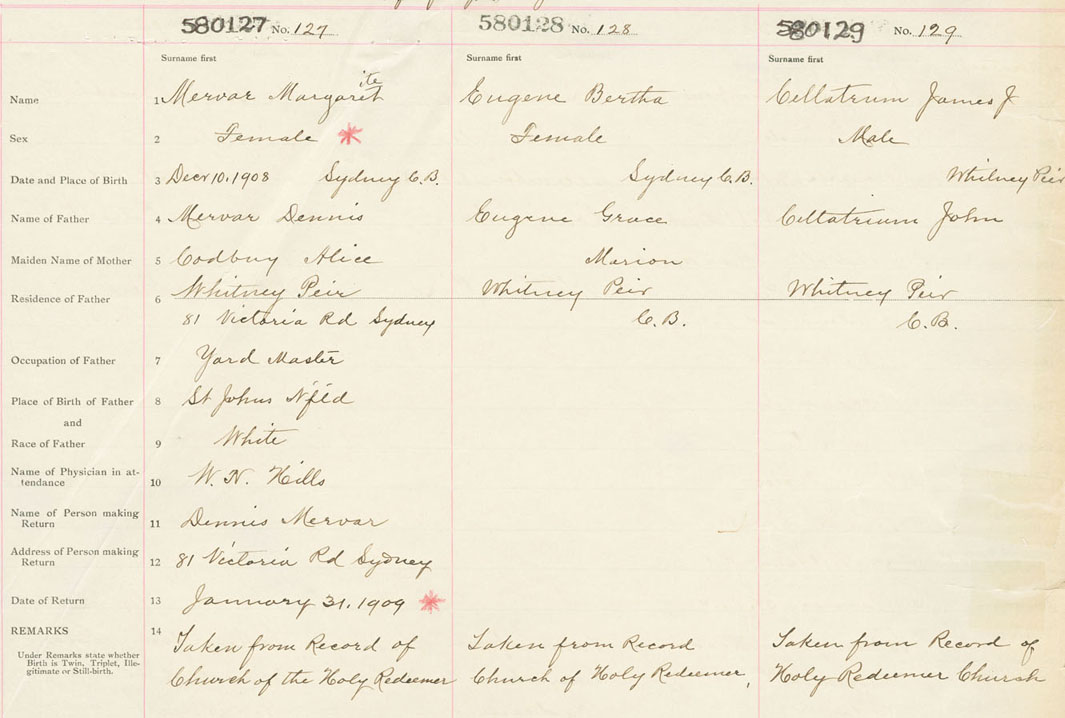 580127 No. 127 580128 No. 128 580129 No. 129
Surname first Surname first Surname first
Name 1 Mervar Margaret ite Eugene Bertha Cellatrum James J
Sex 2 Female * Female Male
Date and Place of Birth 3 Decr 10, 1908 Sydney C.B. Sydney C.B. Whitney Peir
Name of Father 4 Mervar Dennis Eugene Grace Cellatrium John
Maiden Name of Mother 5 Codbuy Alice Marion
Residence of Father 6 Whitney Peir Whitney Peir Whitney Peir
81 Victoria Rd Sydney C.B. C.B.
Occupation of Father 7 Yard Master
Place of Birth of Father 8 St Johns Nfld
and
Race of Father 9 White
Name of Physician in at-
tendance 10 W. N. Hills
Name of Person making
Return 11 Dennis Mervar
Address of Person making
Return 12 81 Victoria Rd Sydney
Date of Return 13 January 31. 1909 *
REMARKS 14 Taken from Record of Taken from Record Taken from Record of
Under Remarks state whether
Birth is Twin, Triplet, Ille-
gitimate or Still-birth.
Church of the Holy Redeemer Church of Holy Redeemer, Holy Redeemer Church